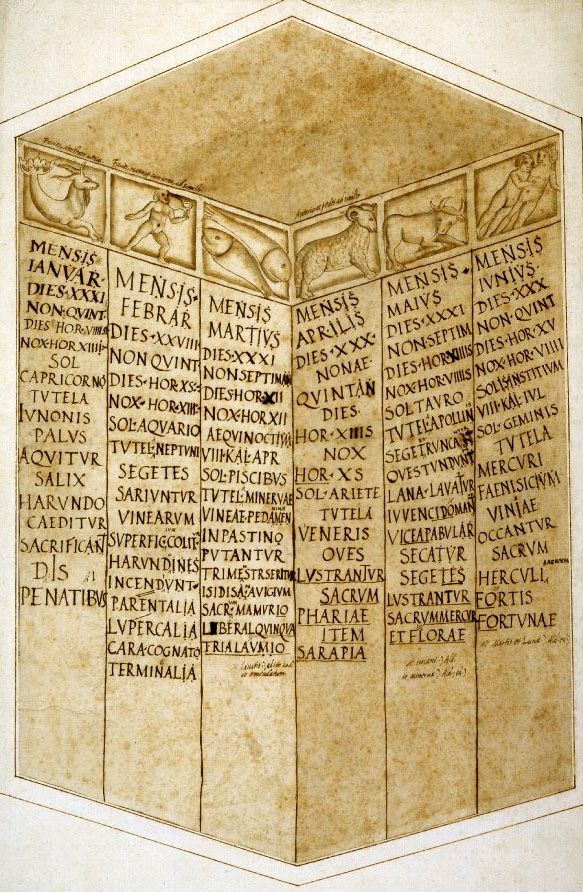 MENSIS
IANVAR·
DIES·XXXI
NON·QVINT·
DIES·HOR·VIIIIS
NOX·HOR·XIIII
SOL
CAPRICORNO
TVTELA
IVNONIS
PALVS
AQVITVR
SALIX
HARVNDO
CAEDITVR
SACRIFICANT
DIS
PENATIBVS
MENSIS·
FEBRAR
DIES·XXVIII
NON·QVINT·
DIES·HOR·XS
NOX·HOR·XIII
SOL·AQVARIO
TVTEL·NEPTVNI
SEGETES
SARIVNTVR
VINEARVM
SVPERFIC·COLIT
HARVNDINES
INCENDVNT·
PARENTALIA
LVPERCALIA
CARA·COGNATIO
TERMINALIA
MENSIS
MARTIVS
DIES·XXXI
NON·SEPTIMAN
DIES·HOR·XII
NOX·HOR·XII
AEQVINOCTIVM
VIII·KAL·APR
SOL·PISCIBVS
TVTEL·MINERVAE
VINEAE·PEDAMEN
IN·PASTINO
PVTANTVR
TRIMESTR·SERITVR
ISIDIS·NAVIGIVM
SACR·MAMVRIO
LIBERAL·QVINQVA
TRIA·LAVATIO
MENSIS
APRILIS
DIES·XXX·
NONAE·
QVINTAN
DIES·
HOR·XIIIS
NOX
HOR·XS
SOL·ARIETE
TVTELA
VENERIS
OVES
LVSTRANTVR
SACRVM
PHARIAE
ITEM
SARAPIA
MENSIS·
MAIVS
DIES·XXXI
NON·SEPTIM
DIES·HOR·XIIIIS
NOX·HOR·VIIIIS
SOL·TAVRO
TVTEL·APOLLIN
SEGET·RVNCANT
OVES·TVNDVNT
LANA·LAVATVR
IVVENCI·DOMANT
VICEA·PABVLAR
SECATVR
SEGETES
LVSTRANTVR
SACRVM·MERCVR
ET·FLORAE
MENSIS
IVNIVS·
DIES·XXX
NON·QVINT
DIES·HOR·XV
NOX·HOR·VIIII
SOLIS·INSTITIVM
VIII·KAL·IVL
SOL·GEMINIS
TVTELA
MERCVRI
FAENISICIVM
VINIAE
OCCANTVR
SACRVM
HERCVLI
FORTIS
FORTVNAE